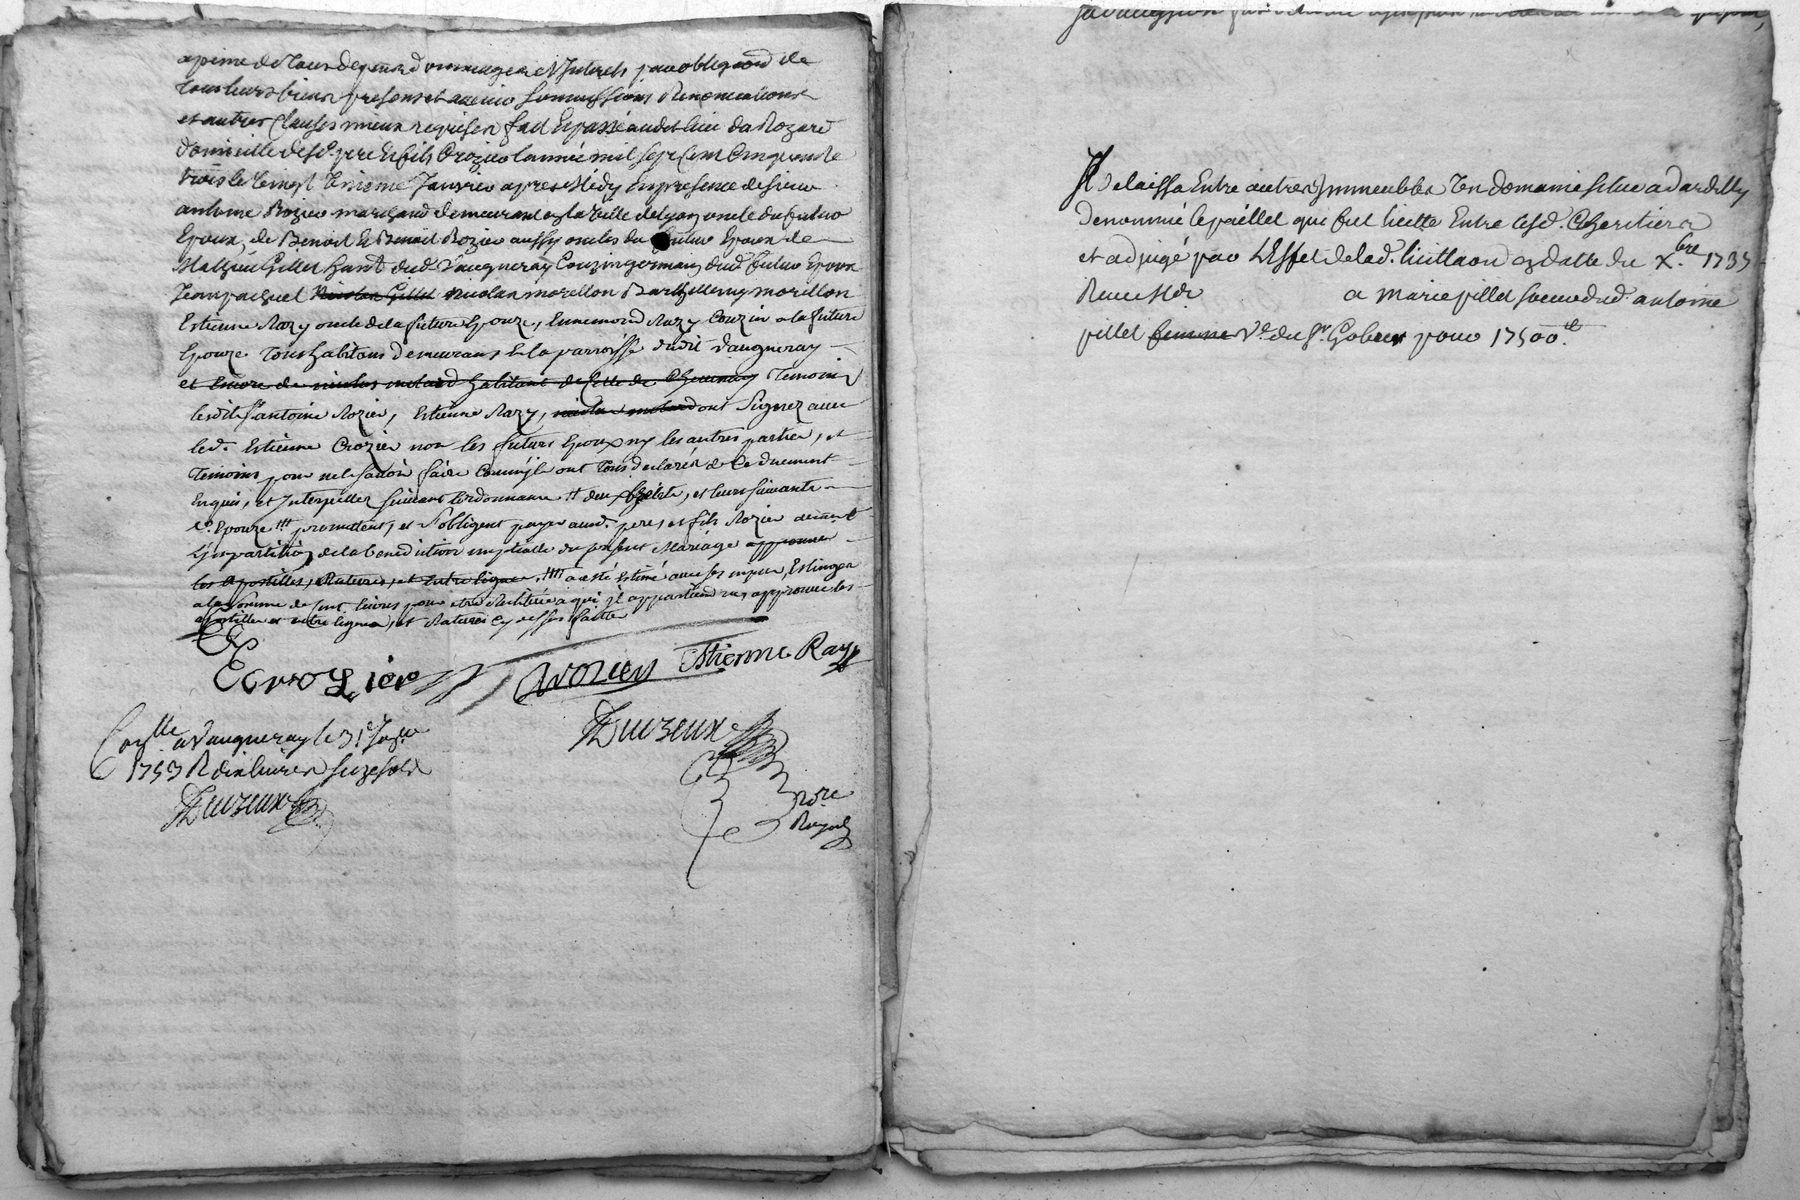 a peine de tous depens dommages et Interets par obligaõn de
tous leurs biens presens et avenir soumissions Renonciations
et autres Clauses mieux requises fait Et passé audit lieu du Rozard
domicille desd. pere et fils Crozier lannée mil sept Cent Cinquante
trois le Vingt Unieme Janvier apres Midy En presence de sieur
antoine Rozier marchand demeurant a la Ville de Lyon oncle du futur
Epoux, de Benoist et Benoist Rozier aussy oncles du futur Epoux de
Mathieu Gillet hant dud. Vaugneray Couzin germain dud. futur Epoux
Jean pachuel Nicolas Gillet nicolas morellon Barthellemy morellon
Estienne Razy oncle de la future Epouze, Ennemond Razy Couzin a la future
Epouze tous habitans demeurans En la parroisse dudit Vaugneray
et Encore de nicolas molard habitant de Celle de Temoins
lesdits sr antoine Rozier, Estienne Razy, nicolas molard ont Signez avec
led. Estienne Crozier non les futurs Epoux ny les autres parties, et
Temoins pour ne le sçavoir faire Comm'jls ont tous declarés de Ce duement
Enquis, et Interpellez suivant l'ordonnance †† deux et leurs suivante
Epouze ††† promettent, et s'obligent payer aud. pere, et fils Rozier
de la benediction nuptialle du present Mariage approuvé
les apostilles, Ratures, et Entre lignes. †††† a esté Estimé avec ses
a la Somme de Cent livres pour etre Restituée a qui jl appartiendra, approuvé les
apostilles et entre lignes, et Ratures Cy dessus faittes
E Crozier Rozier Estienne Razy
Duzeux
Conlle. a Vaugneray le 31e Janer
1753 R dix livres seize sols
Duzeux
nore
Royal
Il delaissa Entre autres Immeubles Un domaine situé a dardilly
denommé le paillet que fut licitté Entre lesd. Cheritiers
et adjugé par L'Effet de lad. licittaõn en datte du Xbre 1737
Receu Me a marie pillet soeur dud. antoine
pillet femme Ve. du sr. Gobert pour 17500 ll